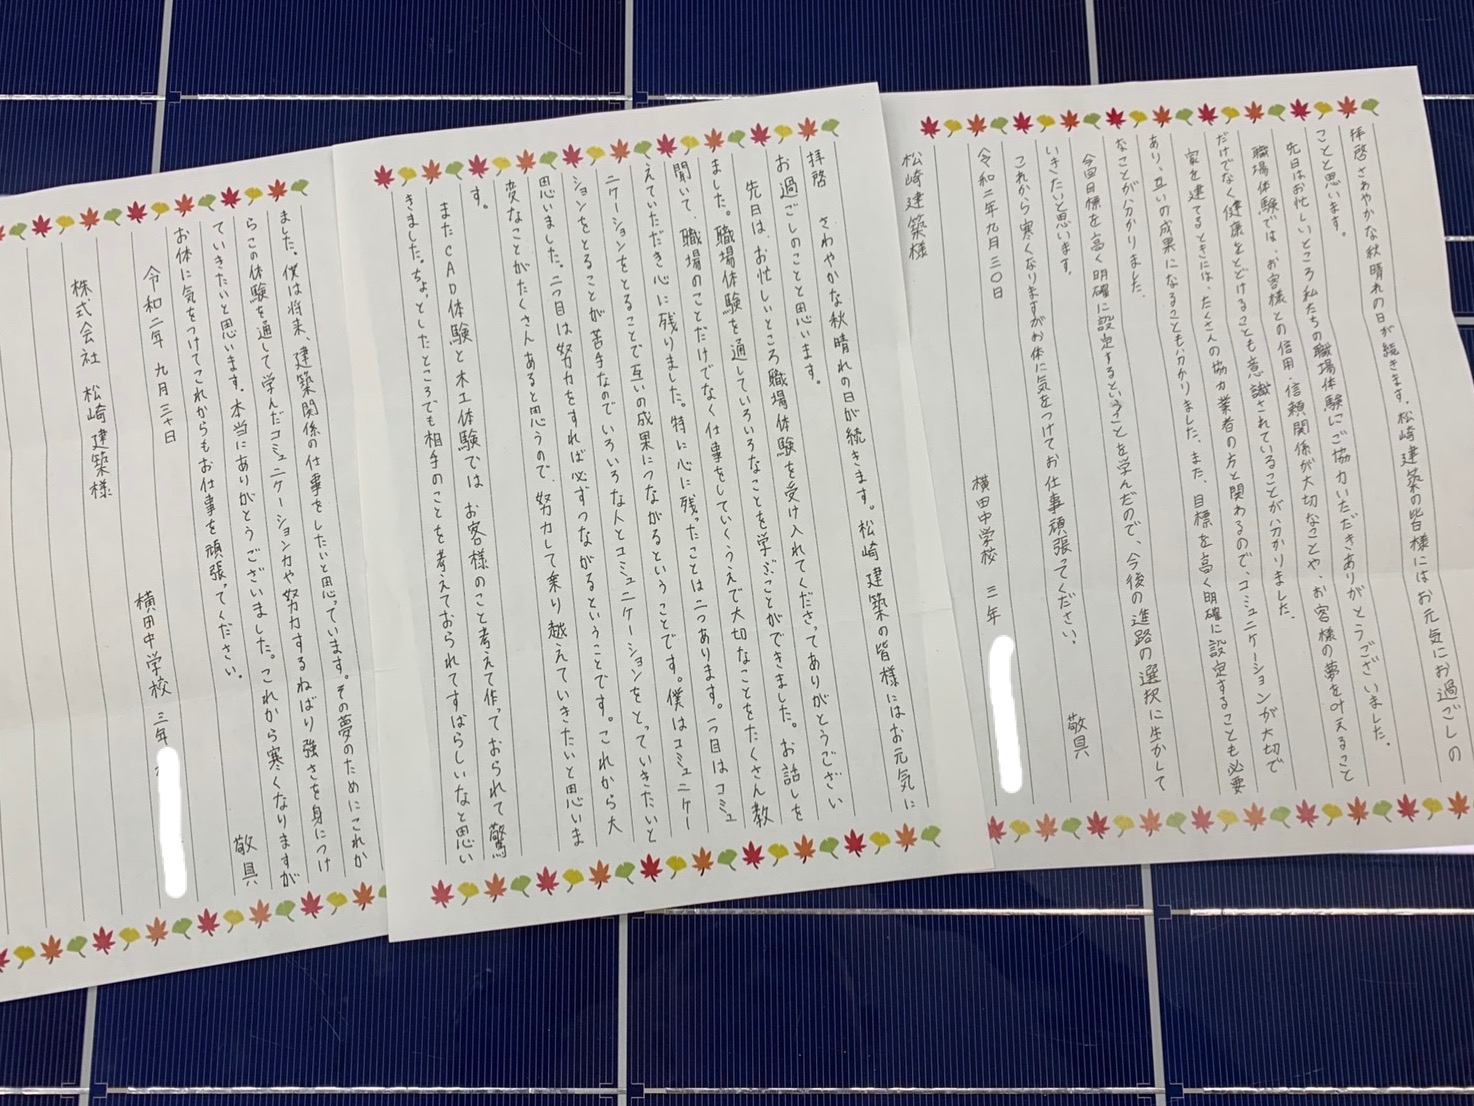 拝啓 さわやかな秋晴れの日が続きます。松崎建築の皆様にはお元気にお過ごしの
ことと思います。
先日はお忙しいところ私たちの職場体験にご協力いただきありがとうございました。
職場体験では、お客様との信用・信頼関係が大切なことや、お客様の夢を叶えること
だけでなく健康をとどけることも意識されていることが分かりました。
家を建てるときには、たくさんの協力業者の方と関わるので、コミュニケーションが大切で
あり、互いの成果になることも分かりました。また、目標を高く明確に設定することも必要
なことが分かりました。
今回目標を高く明確に設定するということを学んだので、今後の進路の選択に生かして
いきたいと思います。
これから寒くなりますがお体に気をつけてお仕事頑張ってください。
敬具
令和二年九月三〇日
横田中学校 三年
松崎建築様
拝啓 さわやかな秋晴れの日が続きます。松崎建築の皆様にはお元気に
お過ごしのことと思います。
先日は、お忙しいところ職場体験を受け入れてくださってありがとうござい
ました。職場体験を通していろいろなことを学ぶことができました。お話しを
聞いて、職場のことだけでなく仕事をしていくうえで大切なことをたくさん教
えていただき心に残りました。特に心に残ったことは二つあります。一つ目はコミュ
ニケーションをとることで互いの成果につながるということです。僕はコミュニケー
ションをとることが苦手なのでいろいろな人とコミュニケーションをとっていきたいと
思いました。二つ目は努力をすれば必ずつながるということです。これから大
変なことがたくさんあると思うので、努力して乗り越えていきたいと思いま
す。
またCAD体験と木工体験では、お客様のこと考えて作っておられて驚
きました。ちょっとしたところでも相手のことを考えておられてすばらしいなと思い
ました。僕は将来、建築関係の仕事をしたいと思っています。その夢のためにこれか
らこの体験を通して学んだコミュニケーション力や努力するねばり強さを身につけ
ていきたいと思います。本当にありがとうございました。これから寒くなりますが
お体に気をつけてこれからもお仕事を頑張ってください。
敬具
令和二年 九月三十日
横田中学校 三年
株式会社 松崎建築様